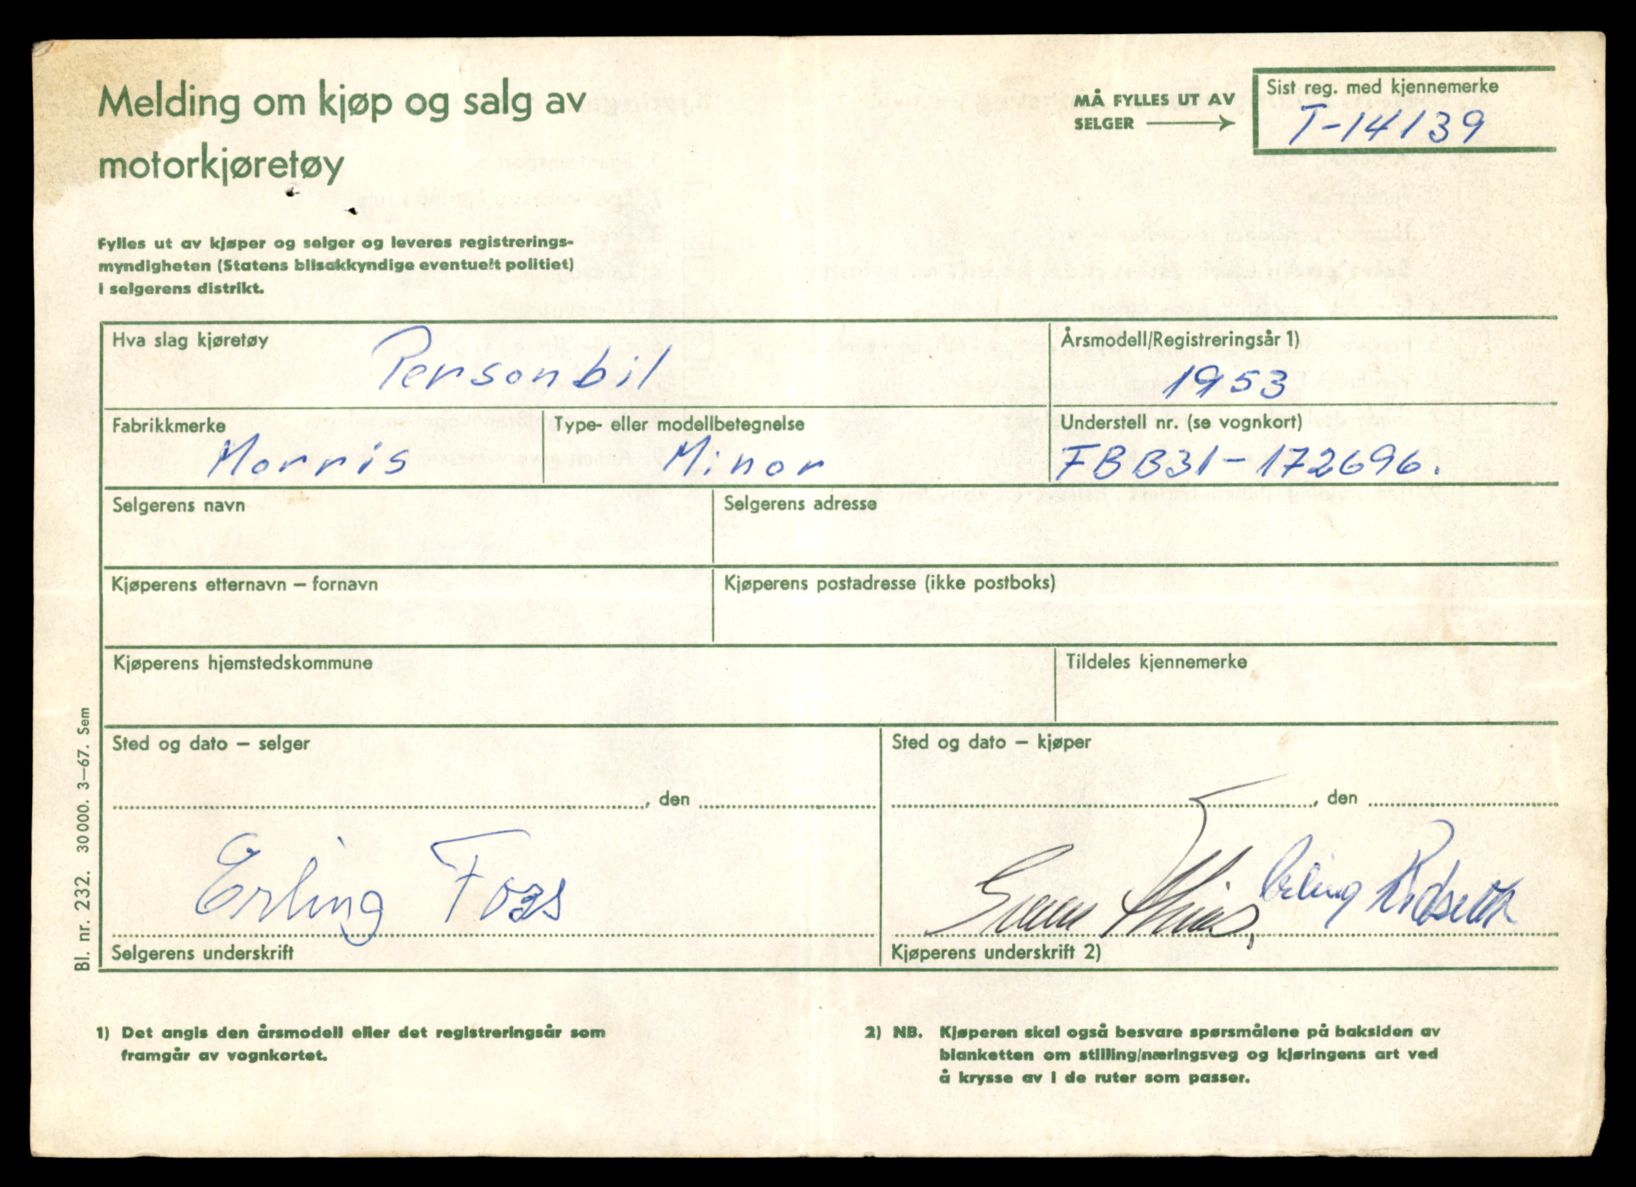 Melding om kjøp og salg av
motorkjøretøy
MÅ FYLLES UT AV
SELGER
Sist reg. med kjennemerke
T-14139
Fylles ut av kjøper og selger og leveres registrerings-
myndigheten (Statens bilsakkyndige eventuelt politiet)
i selgerens distrikt.
Hva slag kjøretøy
Personbil
Årsmodell/Registreringsår 1)
1953
Fabrikkmerke
Morris
Type- eller modellbetegnelse
Minor
Understell nr. (se vognkort)
FBB31-172696.
Selgerens navn
Selgerens adresse
Kjøperens etternavn – fornavn
Kjøperens postadresse (ikke postboks)
Kjøperens hjemstedskommune
Tildeles kjennemerke
Sted og dato – selger
Sted og dato – kjøper
, den
, den
Erling Foss
Erling
Selgerens underskrift
Kjøperens underskrift 2)
Bl. nr. 232. 30000. 3–67. Sem
1) Det angis den årsmodell eller det registreringsår som
framgår av vognkortet.
2) NB. Kjøperen skal også besvare spørsmålene på baksiden av
blanketten om stilling/næringsveg og kjøringens art ved
å krysse av i de ruter som passer.